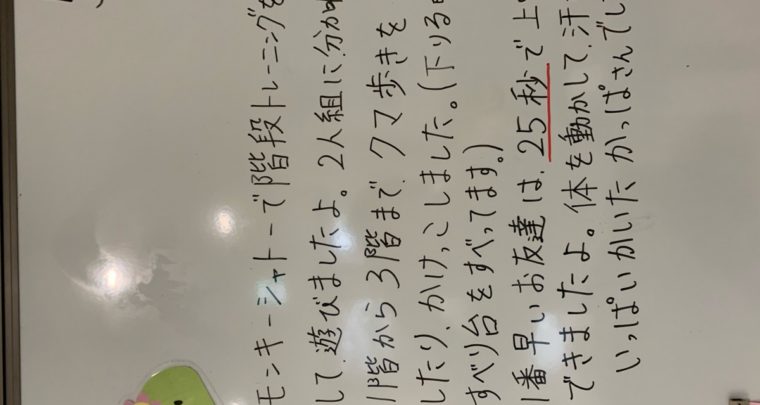 モンキーシャトーで階段トレーニングを
して、遊びましたよ。2人組に分か
1階から3階まで、クマ歩きを
したり、かけっこしました。(下りる
すべり台をすべってます。)
1番早いお友達は、25秒で上
できましたよ。体を動かして、汗
いっぱいかいたかっぱさんでし